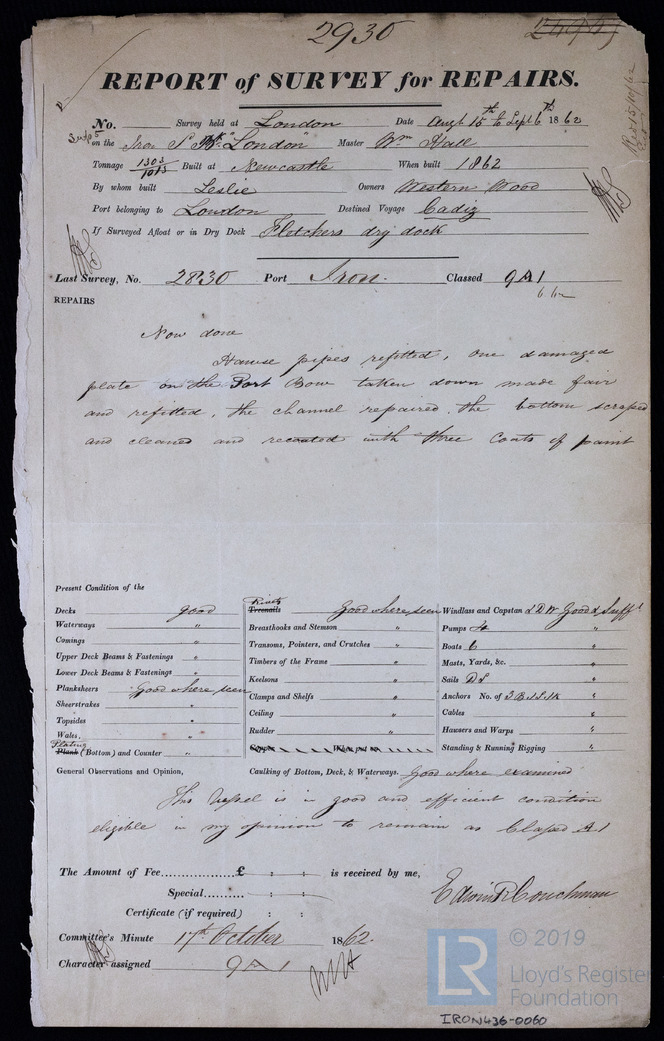 2930
REPORT of SURVEY for REPAIRS.
No. Survey held at London Date Augt 15th to Sept 6th 1862
on the Iron S Str "London" Master Wm Hall
Tonnage 1303/1013 Built at Newcastle When built 1862
By whom built Leslie Owners Western Wood
Port belonging to London Destined Voyage Cadiz
If Surveyed Afloat or in Dry Dock Fletchers dry dock
Last Survey, No. 2830 Port Iron. Classed 9A1
6.62
REPAIRS
Now done
Hawse pipes refitted, one damaged
plate on the Port Bow taken down made fair
and refitted, the channel repaired, the bottom scraped
and cleaned and recoated with three coats of paint
Present Condition of the
Decks good
Waterways "
Comings "
Upper Deck Beams & Fastenings "
Lower Deck Beams & Fastenings "
Planksheers Good where seen
Sheerstrakes "
Topsides "
Wales, "
Plating
Plank (Bottom) and Counter "
Rivets
Treenails Good where seen
Breasthooks and Stemson "
Transoms, Pointers, and Crutches "
Timbers of the Frame "
Keelsons "
Clamps and Shelfs "
Ceiling "
Rudder "
Windlass and Capstan & DW Good & Sufft
Pumps 4 "
Boats 6 "
Masts, Yards, &c. "
Sails DS "
Anchors No. of 3B 1S 1K "
Cables "
Hawsers and Warps "
Standing & Running Rigging "
General Observations and Opinion,
Caulking of Bottom, Deck, & Waterways. Good where examined
This Vessel is in good and efficient condition
eligible in my opinion to remain as Classed A1
The Amount of Fee............... £ : : is received by me,
Special.......... : :
Certificate (if required) : :
Edwin R Couchman
Committee's Minute 17th October 1862.
Character assigned 9A1
LR
© 2019
Lloyd's Register
Foundation
IRON436-0060